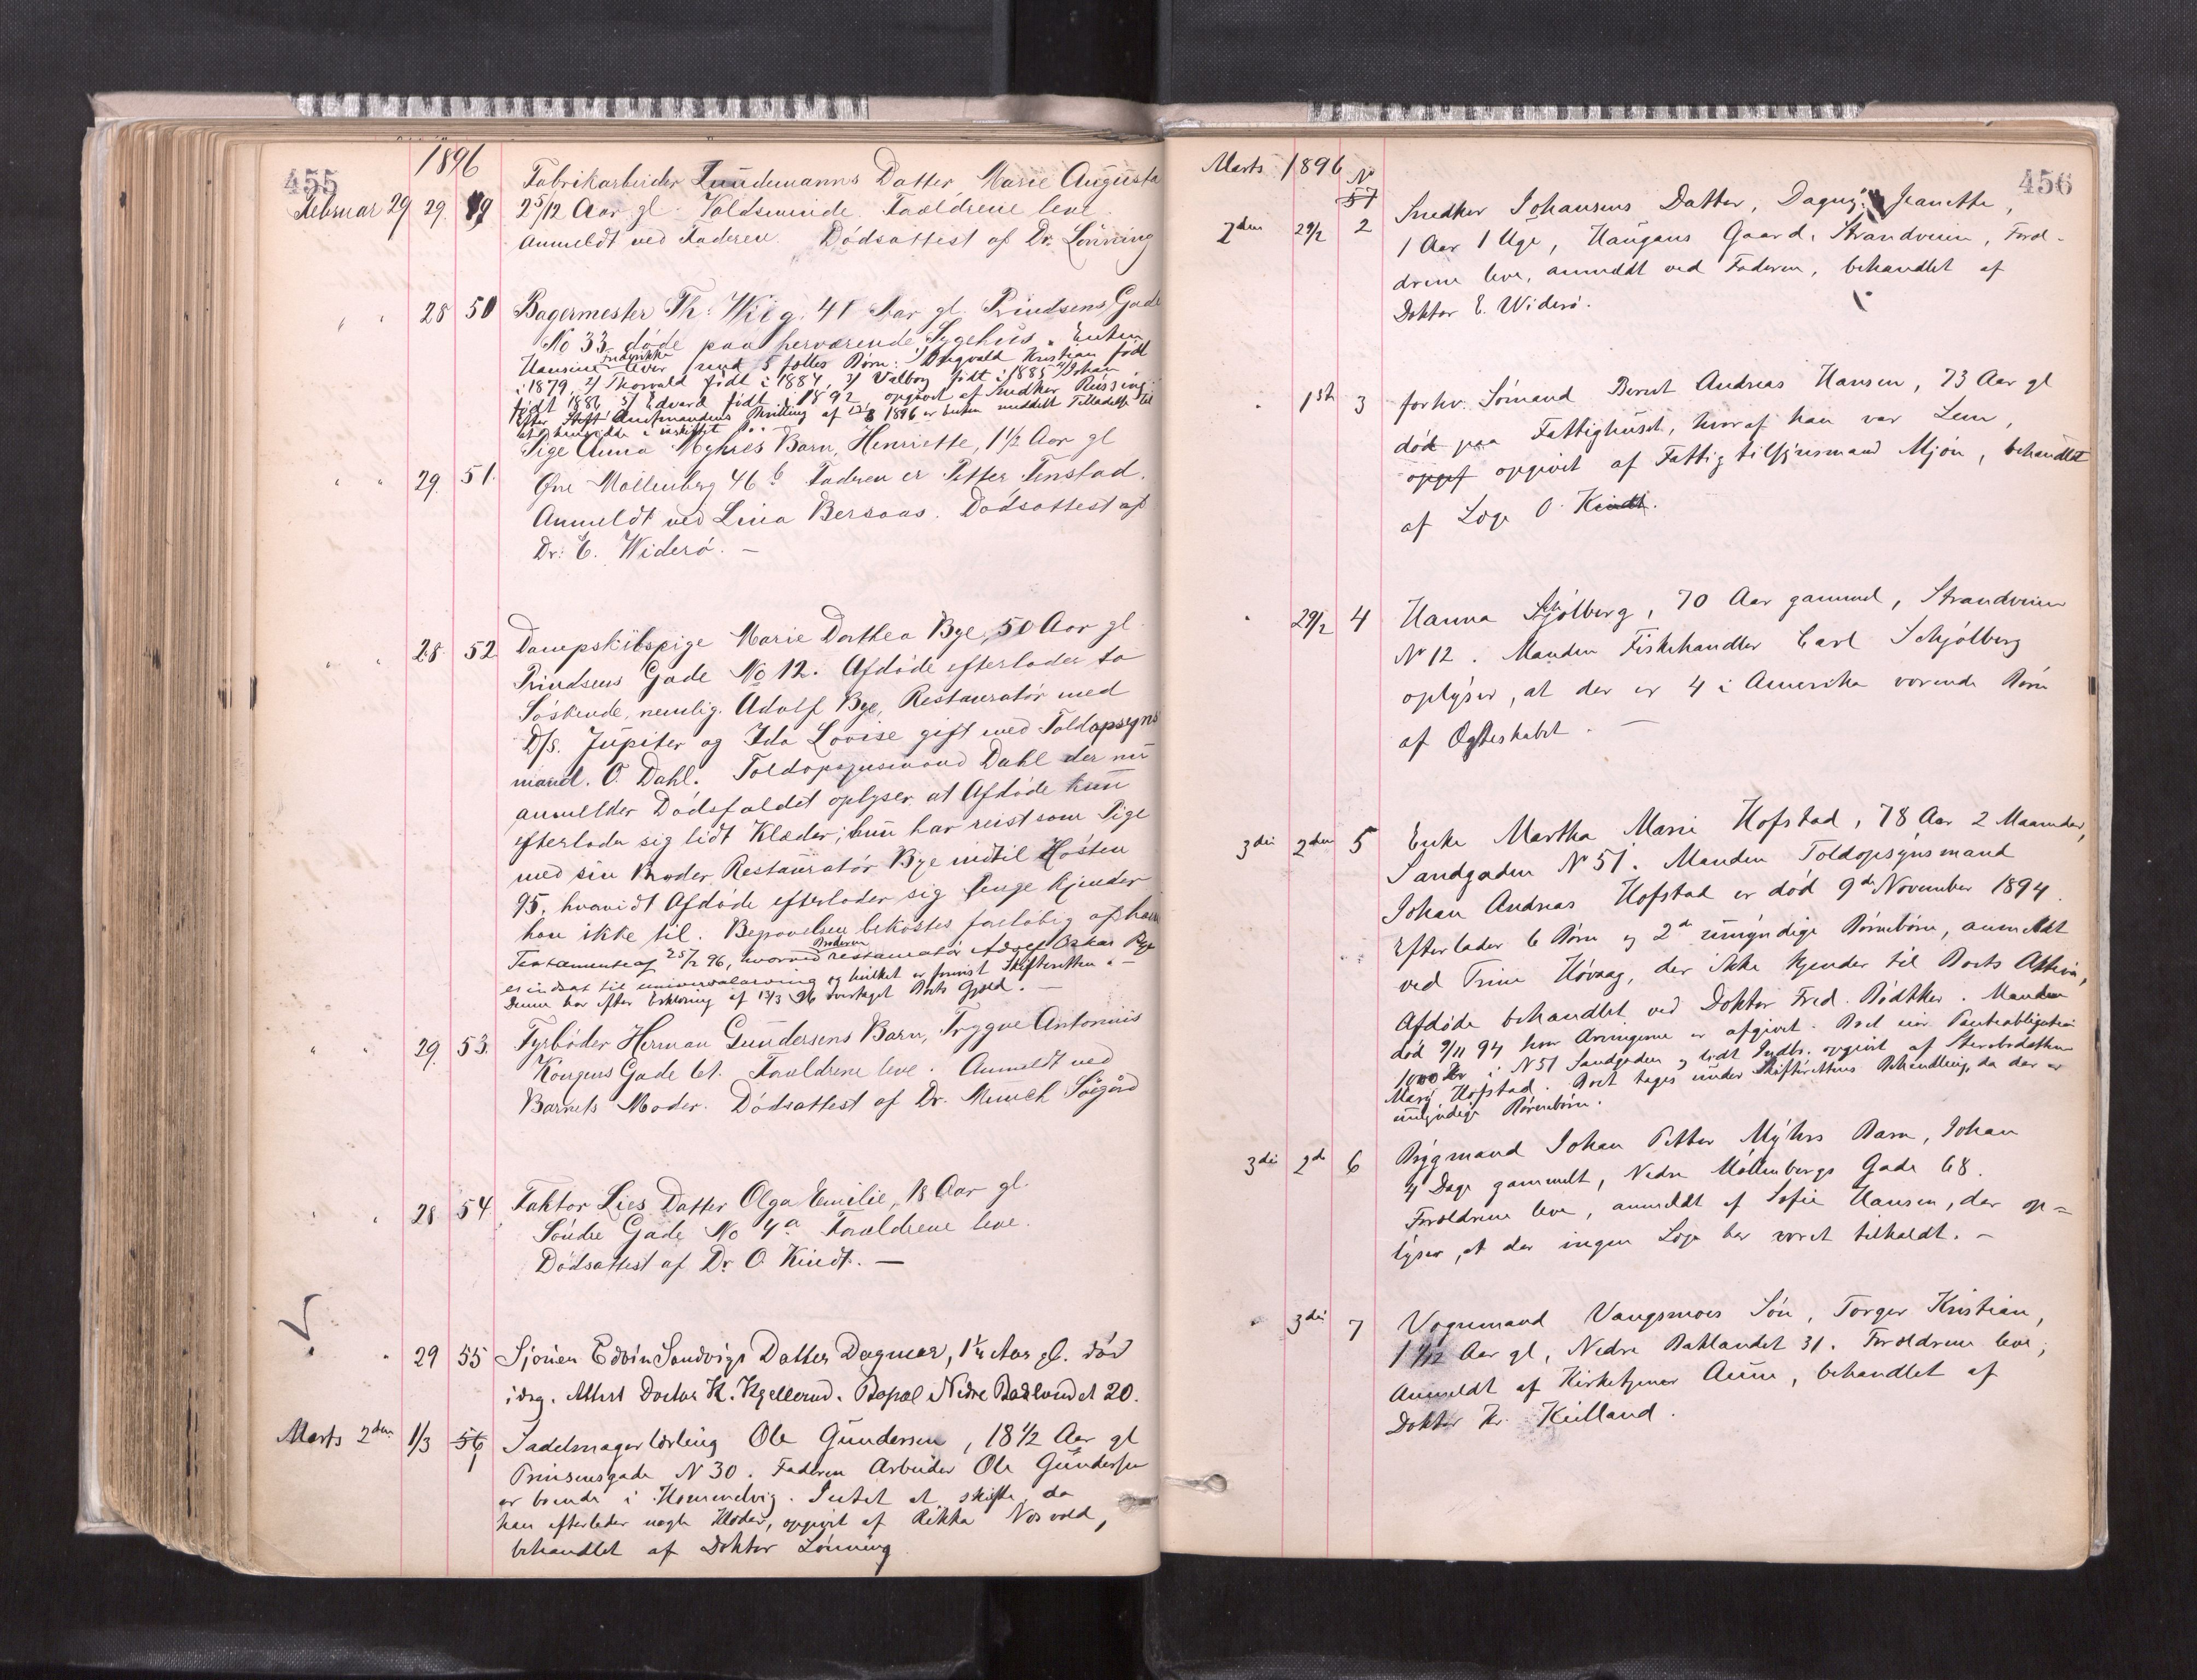 455
1896
Fabrikarbeider Lundemanns Datter, Marie Augusta
Februar 29 29. 49 2 5/12 Aar gl. Voldsminde. Forældrene leve.
Anmeldt ved Faderen. Dødsattest af Dr. Lønning
" " 28 50 Bagermester Th. Wiig, 41 Aar gl. Prindsens Gade
No 33 døde paa herværende Sygehus. Enken
Fredrikke
Hansine lever med 5 fælles Børn: 1/ Dagvald Kristian født
i 1879, 2/ Thorvald født i 1884, 3/ Valborg født i 1885 4/ Johan
født 1886 5/ Edvard født i 1892 opgivet af Snedker Rissing.
Efter Stift Amtmandens Bevilling af 1896 er Enken meddelt Tilladelse til
at hensidde i uskiftet Bo. -
Pige Anna Myhres Barn, Henriette, 1 1/2 Aar gl
" " 29. 51. Øvre Møllenberg 46 b Faderen er Petter Tinstad.
Anmeldt ved Lina Bersaas. Dødsattest af
Dr. E. Widerö. -
" " 28. 52 Dampskibspige Marie Dorthea Bye, 50 Aar gl
Prindsens Gade No 12. Afdøde efterlader to
Søskende, nemlig. Adolf Bye, Restauratør med
D/S. Jupiter og Ida Lovise gift med Toldopsyns
mand. O. Dahl. Toldopsynsmand Dahl der nu
anmelder Dødsfaldet oplyser at Afdøde kun
efterlader sig lidt Klæder; hun har reist som Pige
med sin Broder Restauratør Bye indtil Høsten
95, hvorvidt Afdøde efterlader sig Penge kjender
han ikke til. Begravelsen bekostes foreløbig af ham
Broderen
Testamente af 25/2 96, hvorved restauratør Adolf Oskar Bye
er indsat til universalarving og hvilket er forevist Skifteretten. -
Denne har efter Erklæring af 13/3 96 overtaget Boets Gjæld. -
" " 29. 53. Fyrbøder Herman Gundersens Barn, Trygve Antonius
Kongens Gade 61. Forældrene leve. Anmeldt ved
Barnets Moder. Dødsattest af Dr. Munch Søgård
" " 28 54 Faktor Lies Datter Olga Emilie, 18 Aar gl.
Søndre Gade No 4a Forældrene leve.
Dødsattest af Dr. O. Kindt. -
" 29 55 Sjouer Edvin Sandvigs Datter Dagmar, 1 1/4 Aar gl. død
idag. Attest Doctor K. Kjellerud. Bopæl Nedre Baklandet 20.
Marts 2den 1/3 56 1 Sadelmagerlærling Ole Gundersen, 18 1/2 Aar gl
Prinsensgade N 30. Faderen Arbeider Ole Gundersen
er boende i Hommelvig. Intet at skifte, da
han efterlader nogle Klæder, opgivet af Rikka Nosvold,
behandlet af Doktor Lønning.
Marts 1896 No 456
57
2den 29/2 2 Snedker Johansens Datter, Dagny Jeanette,
1 Aar 1 Uge, Haugans Gaard, Strandveien, Foræl-
drene leve, anmeldt ved Faderen, behandlet af
Doktor E. Widerö.
" 1ste 3 forhv. Sømand Bernt Andreas Hansen, 73 Aar gl
død paa Fattighuset, hvoraf han var Lem,
opgif opgivet af Fattigtilsynsmand Mjøn, behandlet
af Læge O. Kindt.
" 29/2 4 Hanna Schjølberg, 70 Aar gammel, Strandveien
No 12. Manden Fiskehandler Carl Schjølberg
oplyser, at der er 4 i Amerika værende Børn
af Ægteskabet. -
3die 2den 5 Enke Martha Marie Hofstad, 78 Aar 2 Maaneder,
Sandgaden No 51. Manden Toldopsynsmand
Johan Andreas Hofstad er død 9de November 1894.
Efterlader 6 Børn og 2de umyndige Børnebørn, anmeldt
ved Trine Høvaag, der ikke kjender til Boets Aktiva,
Afdøde behandlet ved Doktor Fred. Bødtker. Manden
død 9/11 94 hvor Arvingerne er opgivet. Boet eier Panteobligation
1000 Kr i N 51 Sandgaden og lidt Indbo. opgivet af
Marg Hofstad. Boet tages under Skifterettens Behandling, da der er
umyndige Børnebørn.
3die 2de 6 Bygmand Johan Petter Myhrs Barn, Johan
4 Dage gammelt, Nedre Møllenbergs Gade 68.
Forældrene leve, anmeldt af Sofie Hansen, der op=
lyser, at der ingen Læge har været tilkaldt. -
" 3die 7 Vognmand Vangsmoes Søn, Torger Kristian,
1 Aar gl, Nedre Baklandet 31. Forældrene leve,
Anmeldt af Kirketjener Aune, behandlet af
Doktor Kr. Kielland.